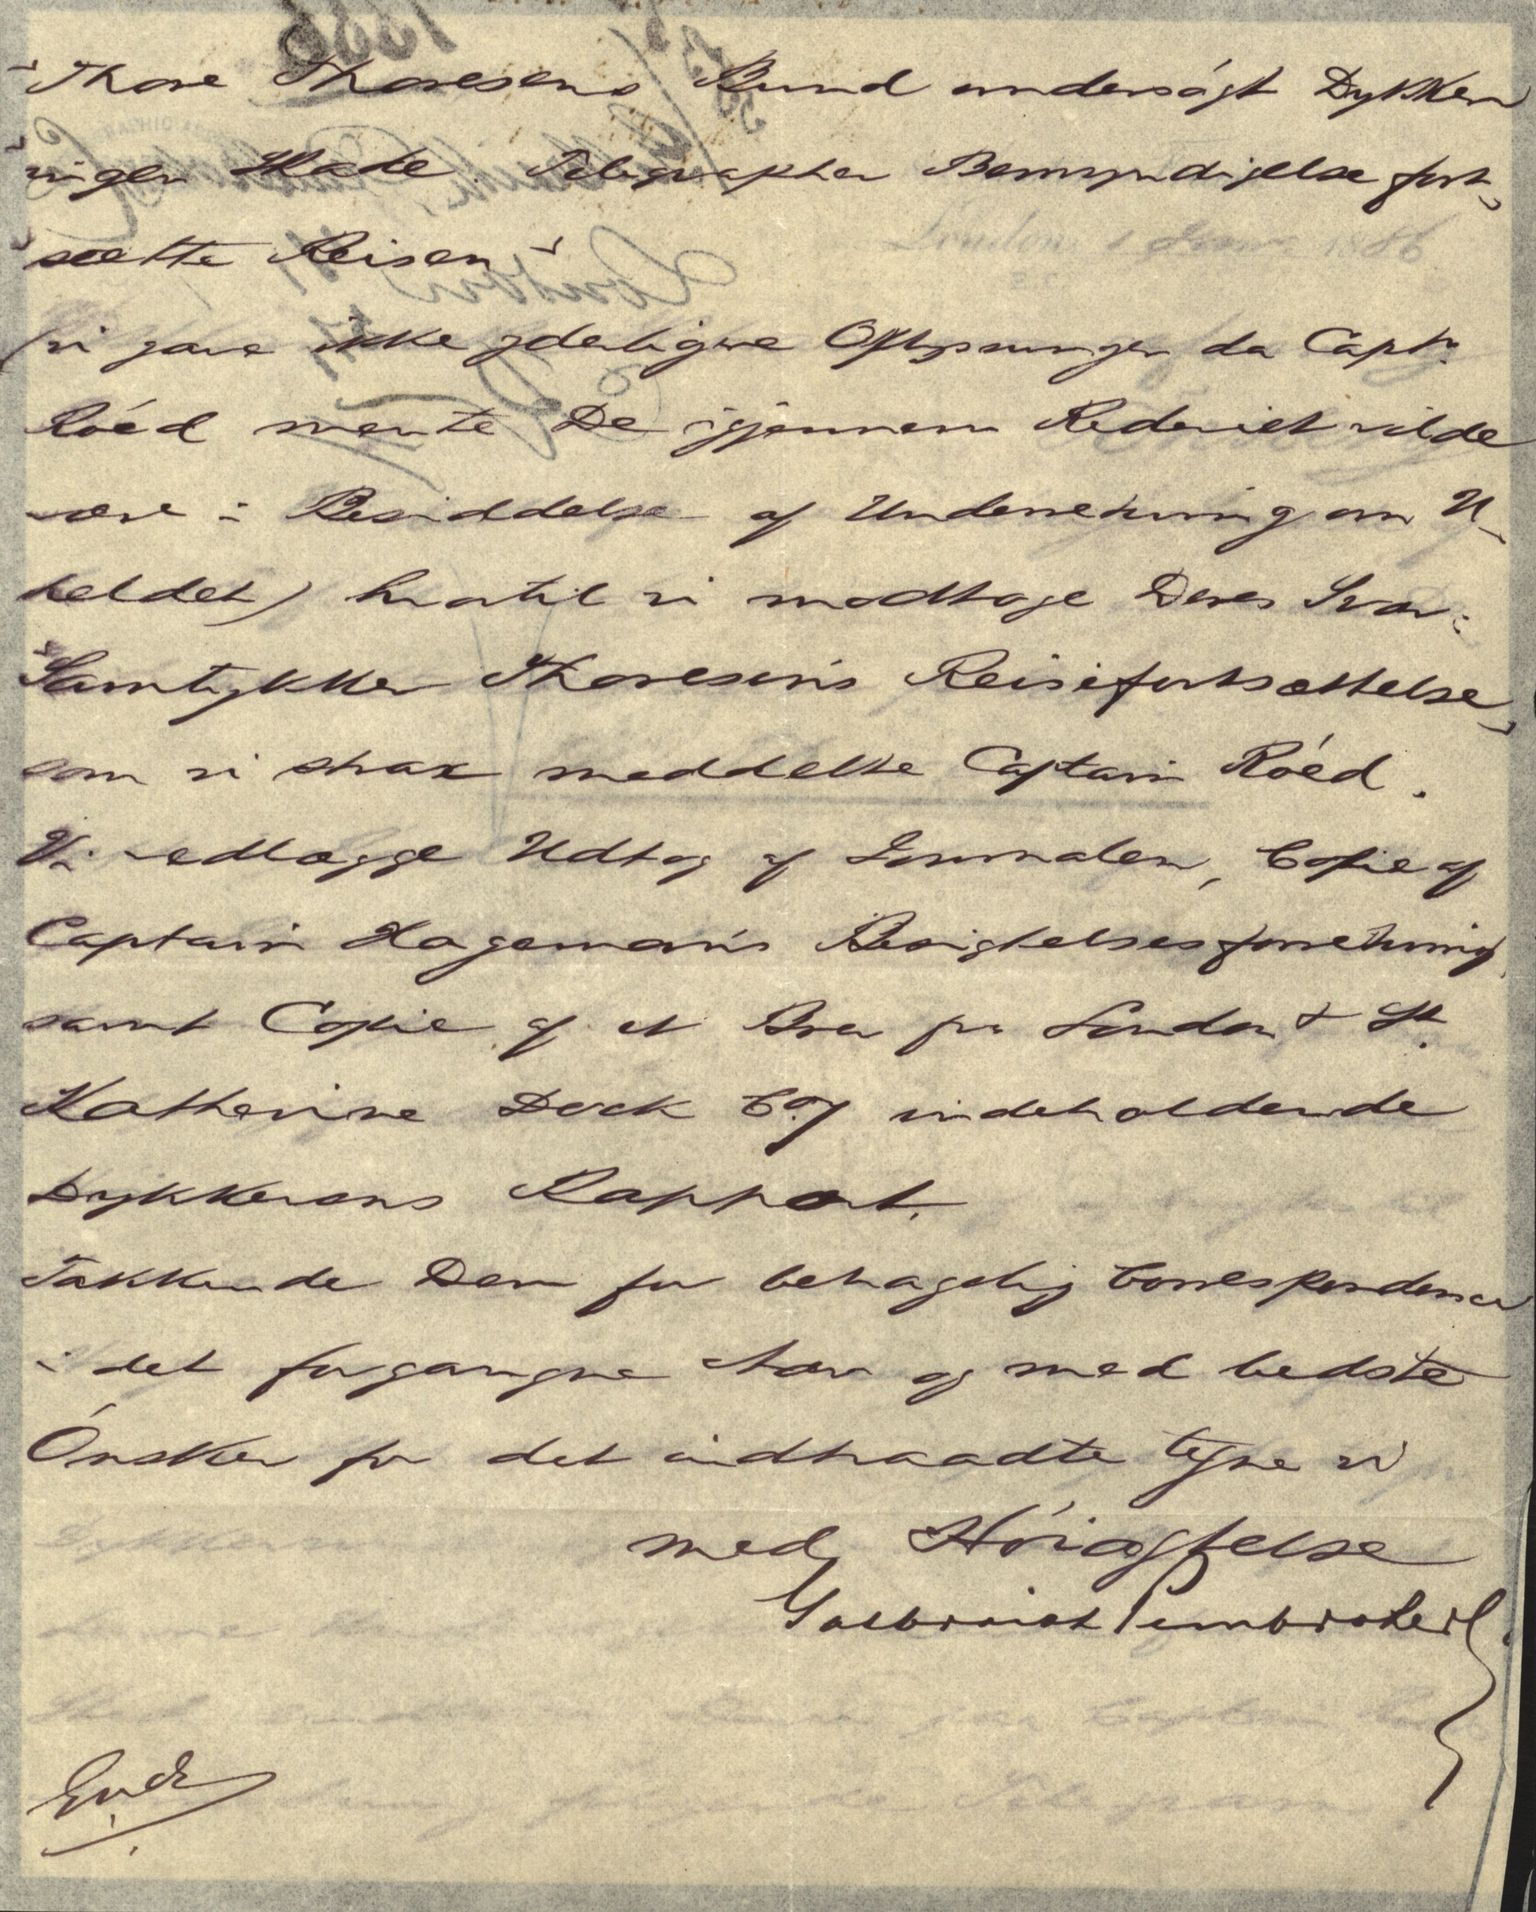 "Thore Thoresens Bund undersøgt Dykker
ingen Skade. Telegrapher Bemyndigelse fort„
sætte Reisen"
(vi gave ikke yderligere Oplysninger da Captn
Róed mente De igjennem Rederiet vilde
være i Besiddelse af Underretning om U„
heldet) hvortil vi modtoge Deres Svar:
"Samtykker Thoresen's Reisefortsættelse„
som vi strax meddelte Captain Róed.
Vi vedlægge Udtog af Journalen, Copie af
Captain Hageman's Besigtelsesforretning
samt Copie af et Brev fra London & St.
Katherine Dock Coy indeholdende
Dykkerens Rapport.
Takkende Dem for behagelig Correspondence
i det forgangne Aar og med bedste
Ónsker for det indtraadte tegne vi
med Hóiagtelse
Galbraith Pembroke & C
London, 1 1886